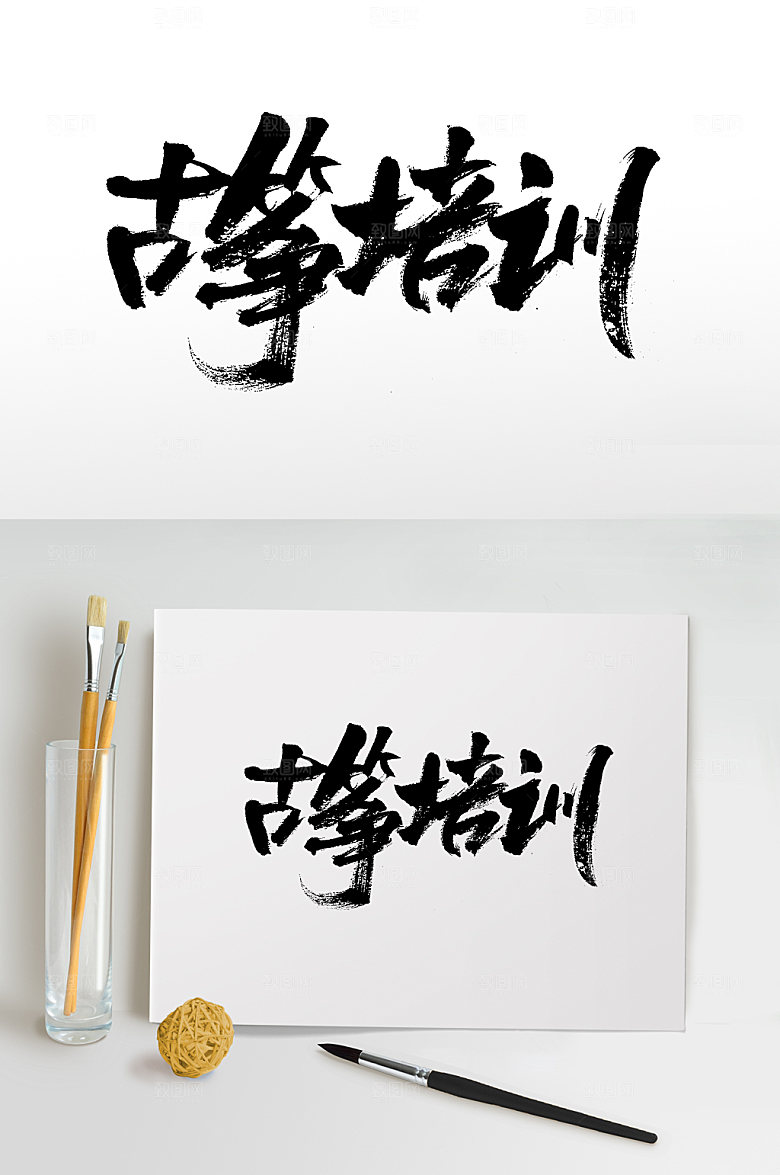 古筝培训
古筝培训